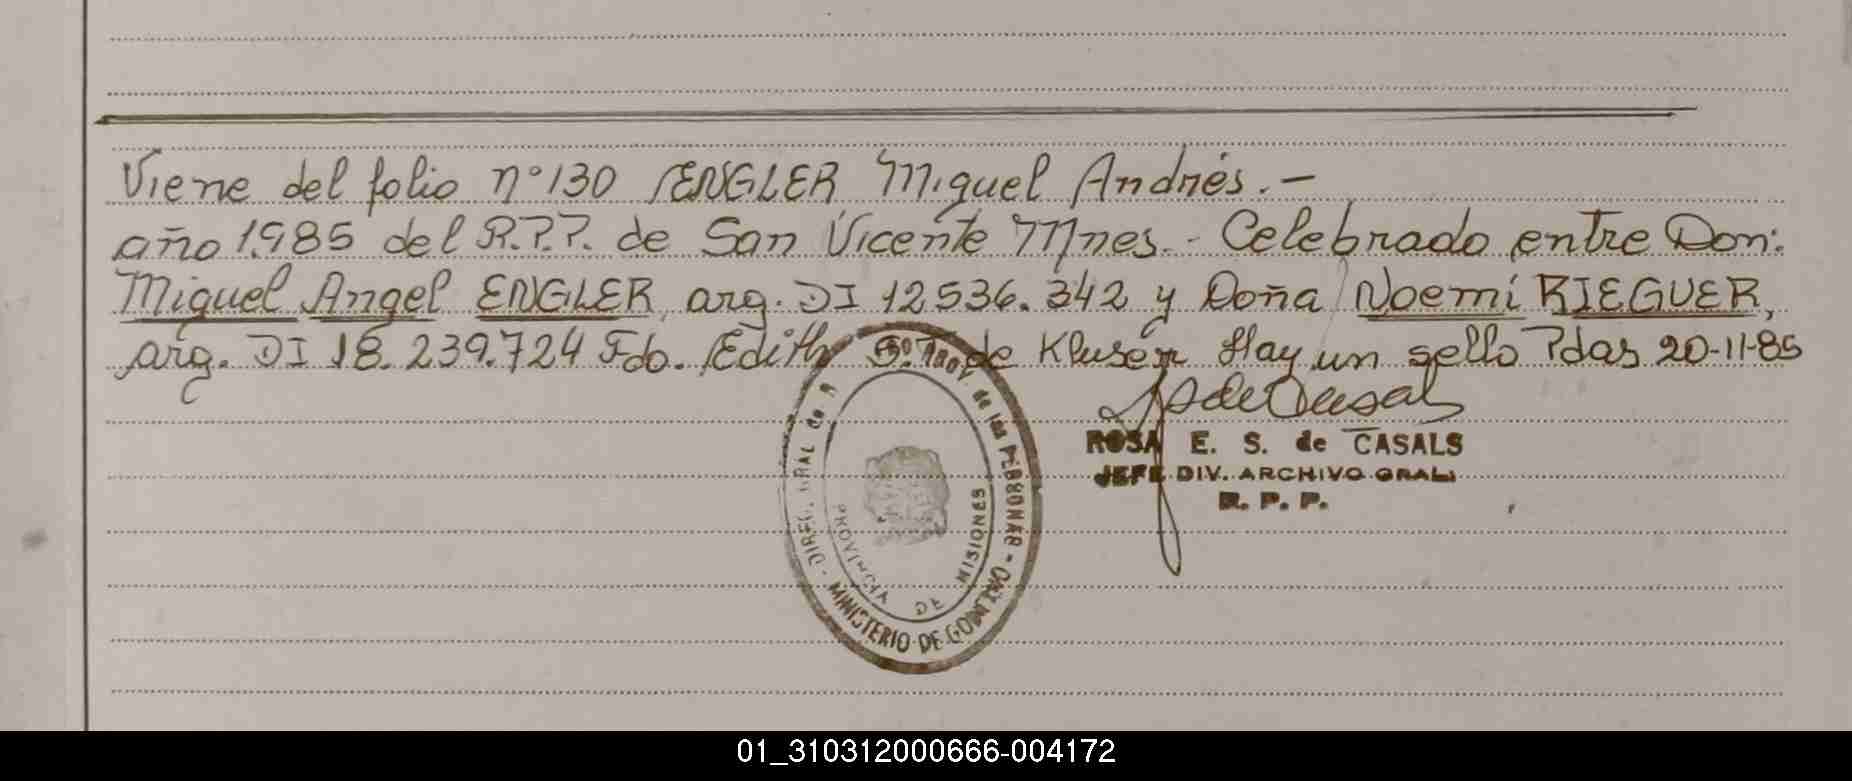 Viene del folio n° 130 ENGLER Miguel Andrés. -
año 1.985 del R.P.P. de San Vicente Mnes. - Celebrado entre Don:
Miguel Angel ENGLER, arg. DI 12536.342 y Doña Noemí RIEGUER,
arg. DI 18.239.724 Fdo. Edith de Klusen Hay un sello Pdas 20-11-85
ROSA E. S. de CASALS
JEFE DIV. ARCHIVO GRAL.
R. P. P.
DIREC. GRAL de R de las PERSONAS -
MINISTERIO DE GOBIERNO
PROVINCIA DE MISIONES
01_310312000666-004172